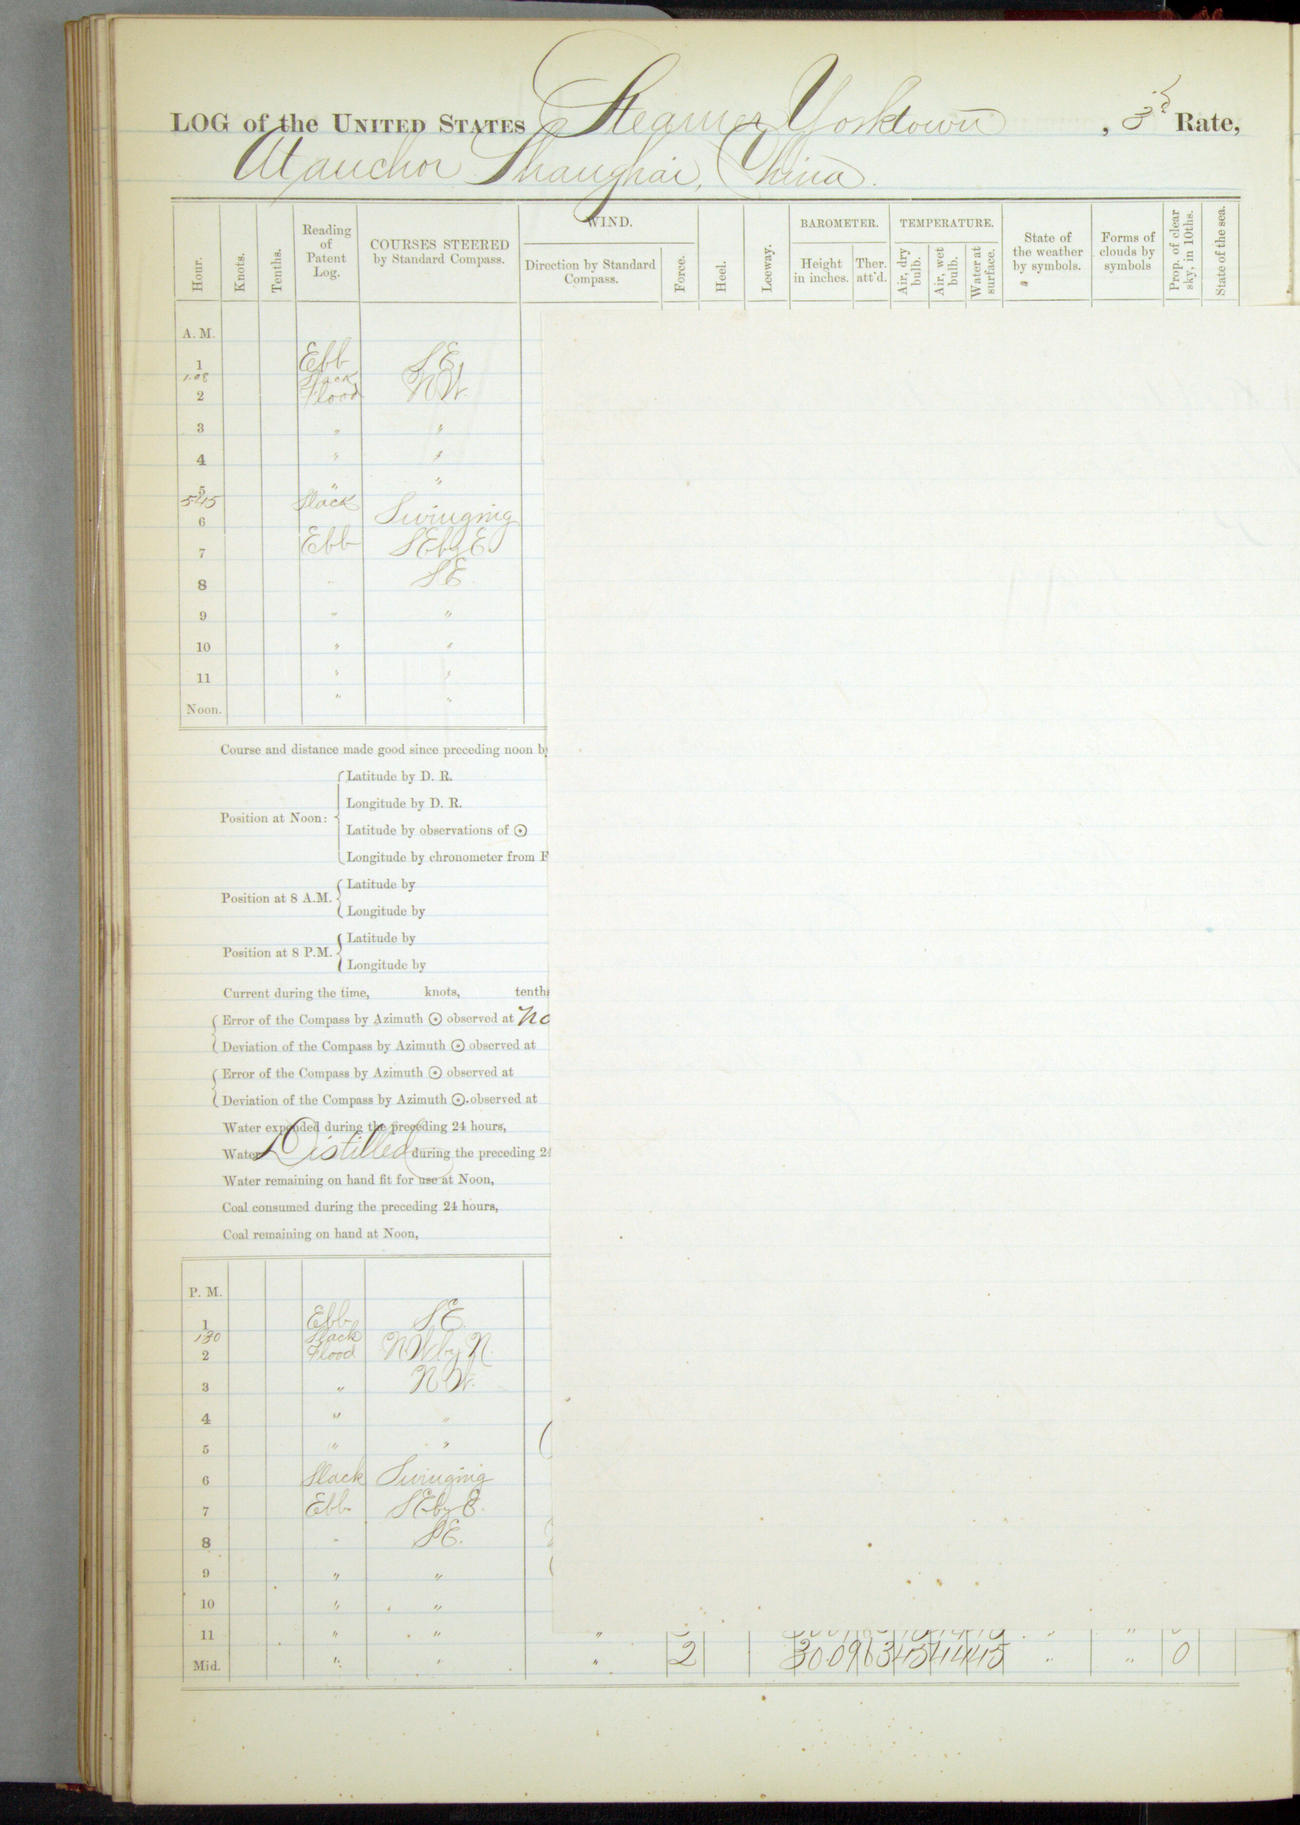 LOG of the UNITED STATES Steamer Yorktown , 3d Rate,
At anchor Shanghai, China.
Hour. Knots. Tenths. Reading of Patent Log. COURSES STEERED by Standard Compass. WIND. Direction by Standard Compass. Force. Heel. Leeway. BAROMETER. Height in inches. Ther. att'd. TEMPERATURE. Air, dry bulb. Air, wet bulb. Water at surface. State of the weather by symbols. Forms of clouds by symbols Prop. of clear sky, in 10ths. State of the sea.
A. M.
1 Ebb SE
1.08 Slack
2 Flood NW.
3 " "
4 " "
5 " "
5.45 Slack
6 Swinging
7 Ebb SEbyE
8 " SE
9 " "
10 " "
11 " "
Noon. " "
Course and distance made good since preceding noon by
Position at Noon:
Latitude by D. R.
Longitude by D. R.
Latitude by observations of ☉
Longitude by chronometer from
Position at 8 A.M.
Latitude by
Longitude by
Position at 8 P.M.
Latitude by
Longitude by
Current during the time, knots, tenths
Error of the Compass by Azimuth ☉ observed at No
Deviation of the Compass by Azimuth ☉ observed at
Error of the Compass by Azimuth ☉ observed at
Deviation of the Compass by Azimuth ☉ observed at
Water expended during the preceding 24 hours,
Water Distilled during the preceding 24
Water remaining on hand fit for use at Noon,
Coal consumed during the preceding 24 hours,
Coal remaining on hand at Noon,
P. M.
1 Ebb SE.
1 30 Slack
2 Flood NWbyN.
3 " NW.
4 " "
5 " "
6 Slack Swinging
7 Ebb SEbyE.
8 " SE.
9 " "
10 " "
11 " " " " "
Mid. " " " 2 30.09 63 45 44 45 " " 0